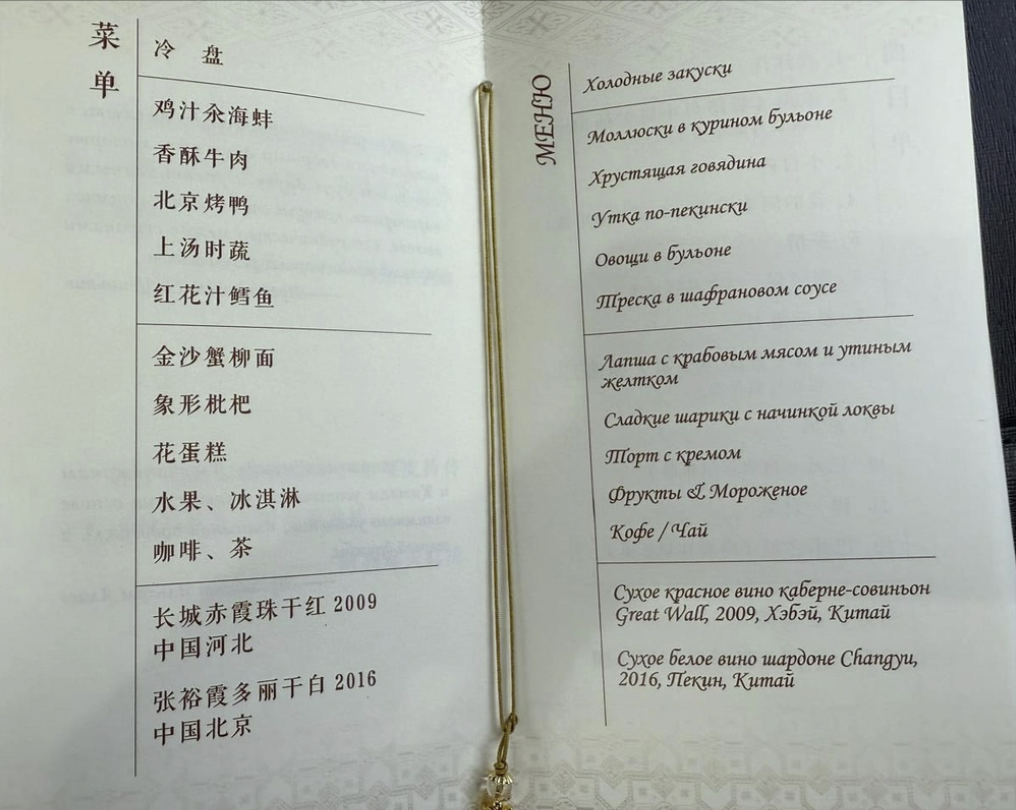 菜单
冷 盘
鸡汁汆海蚌
香酥牛肉
北京烤鸭
上汤时蔬
红花汁鳕鱼
金沙蟹柳面
象形枇杷
花蛋糕
水果、冰淇淋
咖啡、茶
长城赤霞珠干红 2009
中国河北
张裕霞多丽干白 2016
中国北京
МЕНЮ
Холодные закуски
Моллюски в курином бульоне
Хрустящая говядина
Утка по-пекински
Овощи в бульоне
Треска в шафрановом соусе
Лапша с крабовым мясом и утиным
желтком
Сладкие шарики с начинкой локвы
Торт с кремом
Фрукты & Мороженое
Кофе / Чай
Сухое красное вино каберне-совиньон
Great Wall, 2009, Хэбэй, Китай
Сухое белое вино шардоне Changyu,
2016, Пекин, Китай